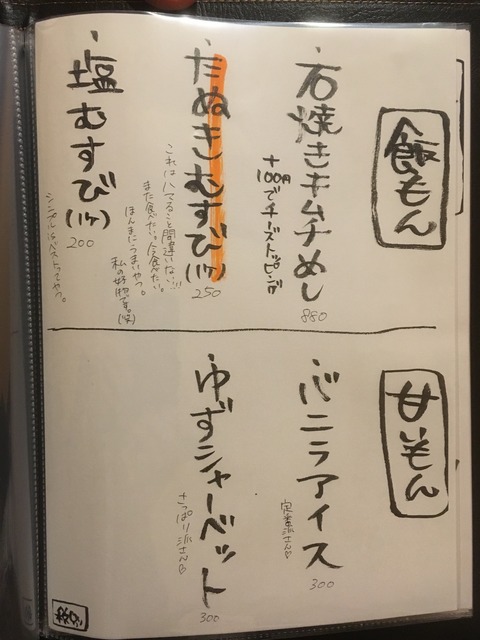 飯もん
・石焼きキムチめし
+100円でチーズトッピング
880
・たぬきむすび(1ケ)
250
これはハマること間違いない!!!
また食べたい。今食べたい。
ほんまにうまいやつ。
私の好物です。(笑)
・塩むすび(1ケ)
200
シンプルisベストってやつ。
甘いもん
・バニラアイス
定番派さん
300
・ゆずシャーベット
さっぱり派さん
300